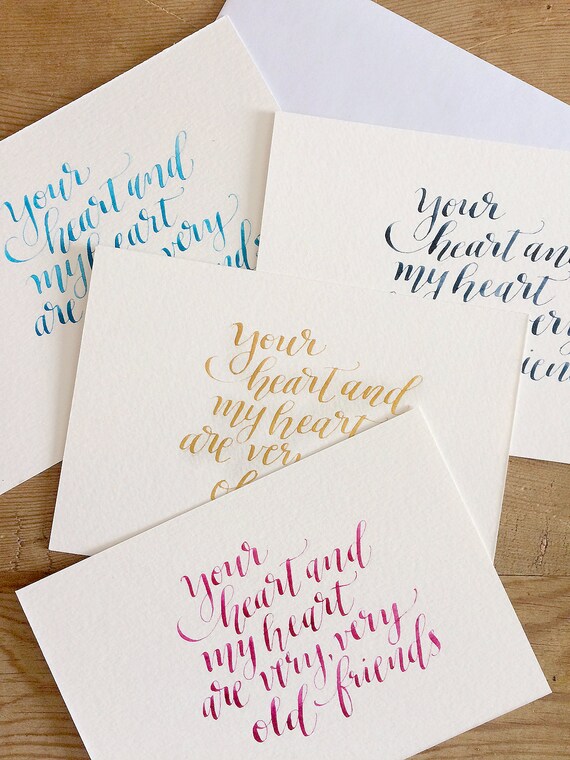 your
heart and
my heart
are very
your
heart and
my heart
your
heart and
my heart
are very
old
your
heart and
my heart
are very, very
old friends